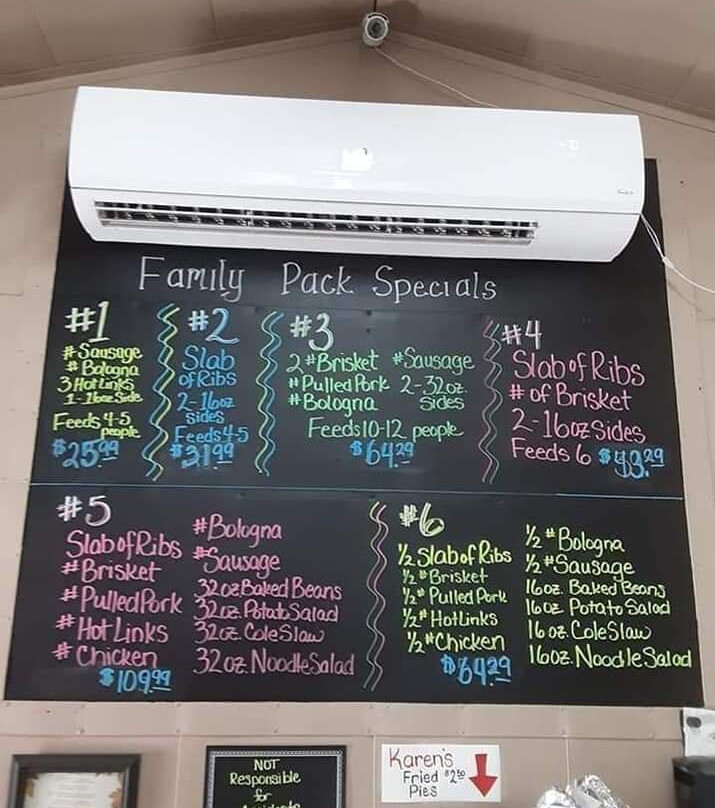 Family Pack Specials
#1
# Sausage
# Bologna
3 Hot Links
1-16oz Side
Feeds 4-5
people
$25.99
#2
Slab
of Ribs
2-16oz
sides
Feeds 4-5
$31.99
#3
2 # Brisket
# Pulled Pork
# Bologna
# Sausage
2-32oz.
Sides
Feeds 10-12 people
$64.29
#4
Slab of Ribs
# of Brisket
2-16oz Sides
Feeds 6 $43.29
#5
Slab of Ribs
# Brisket
# Pulled Pork
# Hot Links
# Chicken
$109.99
# Bologna
# Sausage
32oz Baked Beans
32oz. Potato Salad
32oz. Cole Slaw
32 oz. Noodle Salad
#6
½ Slab of Ribs
½ # Brisket
½ # Pulled Pork
½ # Hot Links
½ # Chicken
$64.29
½ # Bologna
½ # Sausage
16oz. Baked Beans
16oz. Potato Salad
16 oz. Cole Slaw
16oz. Noodle Salad
NOT
Responsible
for
Karen's
Fried $2.50
Pies